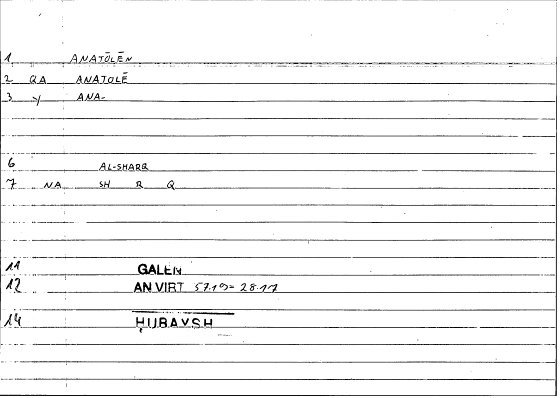 1 ANATŌLĒN
2 QA ANATOLĒ
3 Y ANA-
6 AL-SHARQ
7 NA SH R Q
11 GALEN
12 AN VIRT 57.19= 28.17
14 ḤUBAYSH